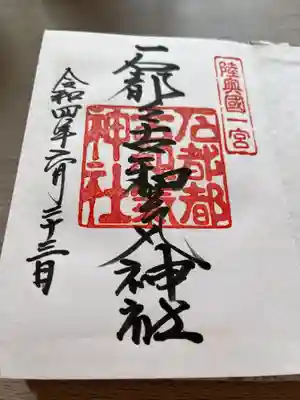 陸奥國一宮
石都々古和気神社
石都都
古和氣
神社
令和四年六月二十三日